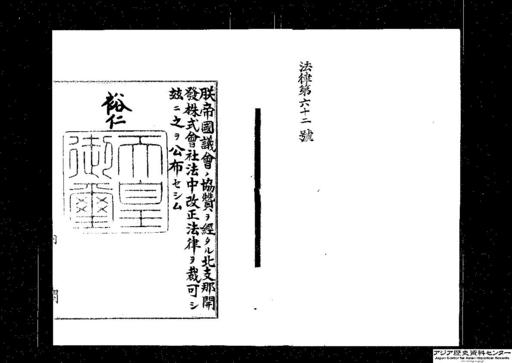 法律第六十二號
朕帝國議會ノ協贊ヲ經タル北支那開
發株式會社法中改正法律ヲ裁可シ
玆ニ之ヲ公布セシム
裕仁
天皇
御璽
アジア歴史資料センター
Japan Center for Asian Historical Records